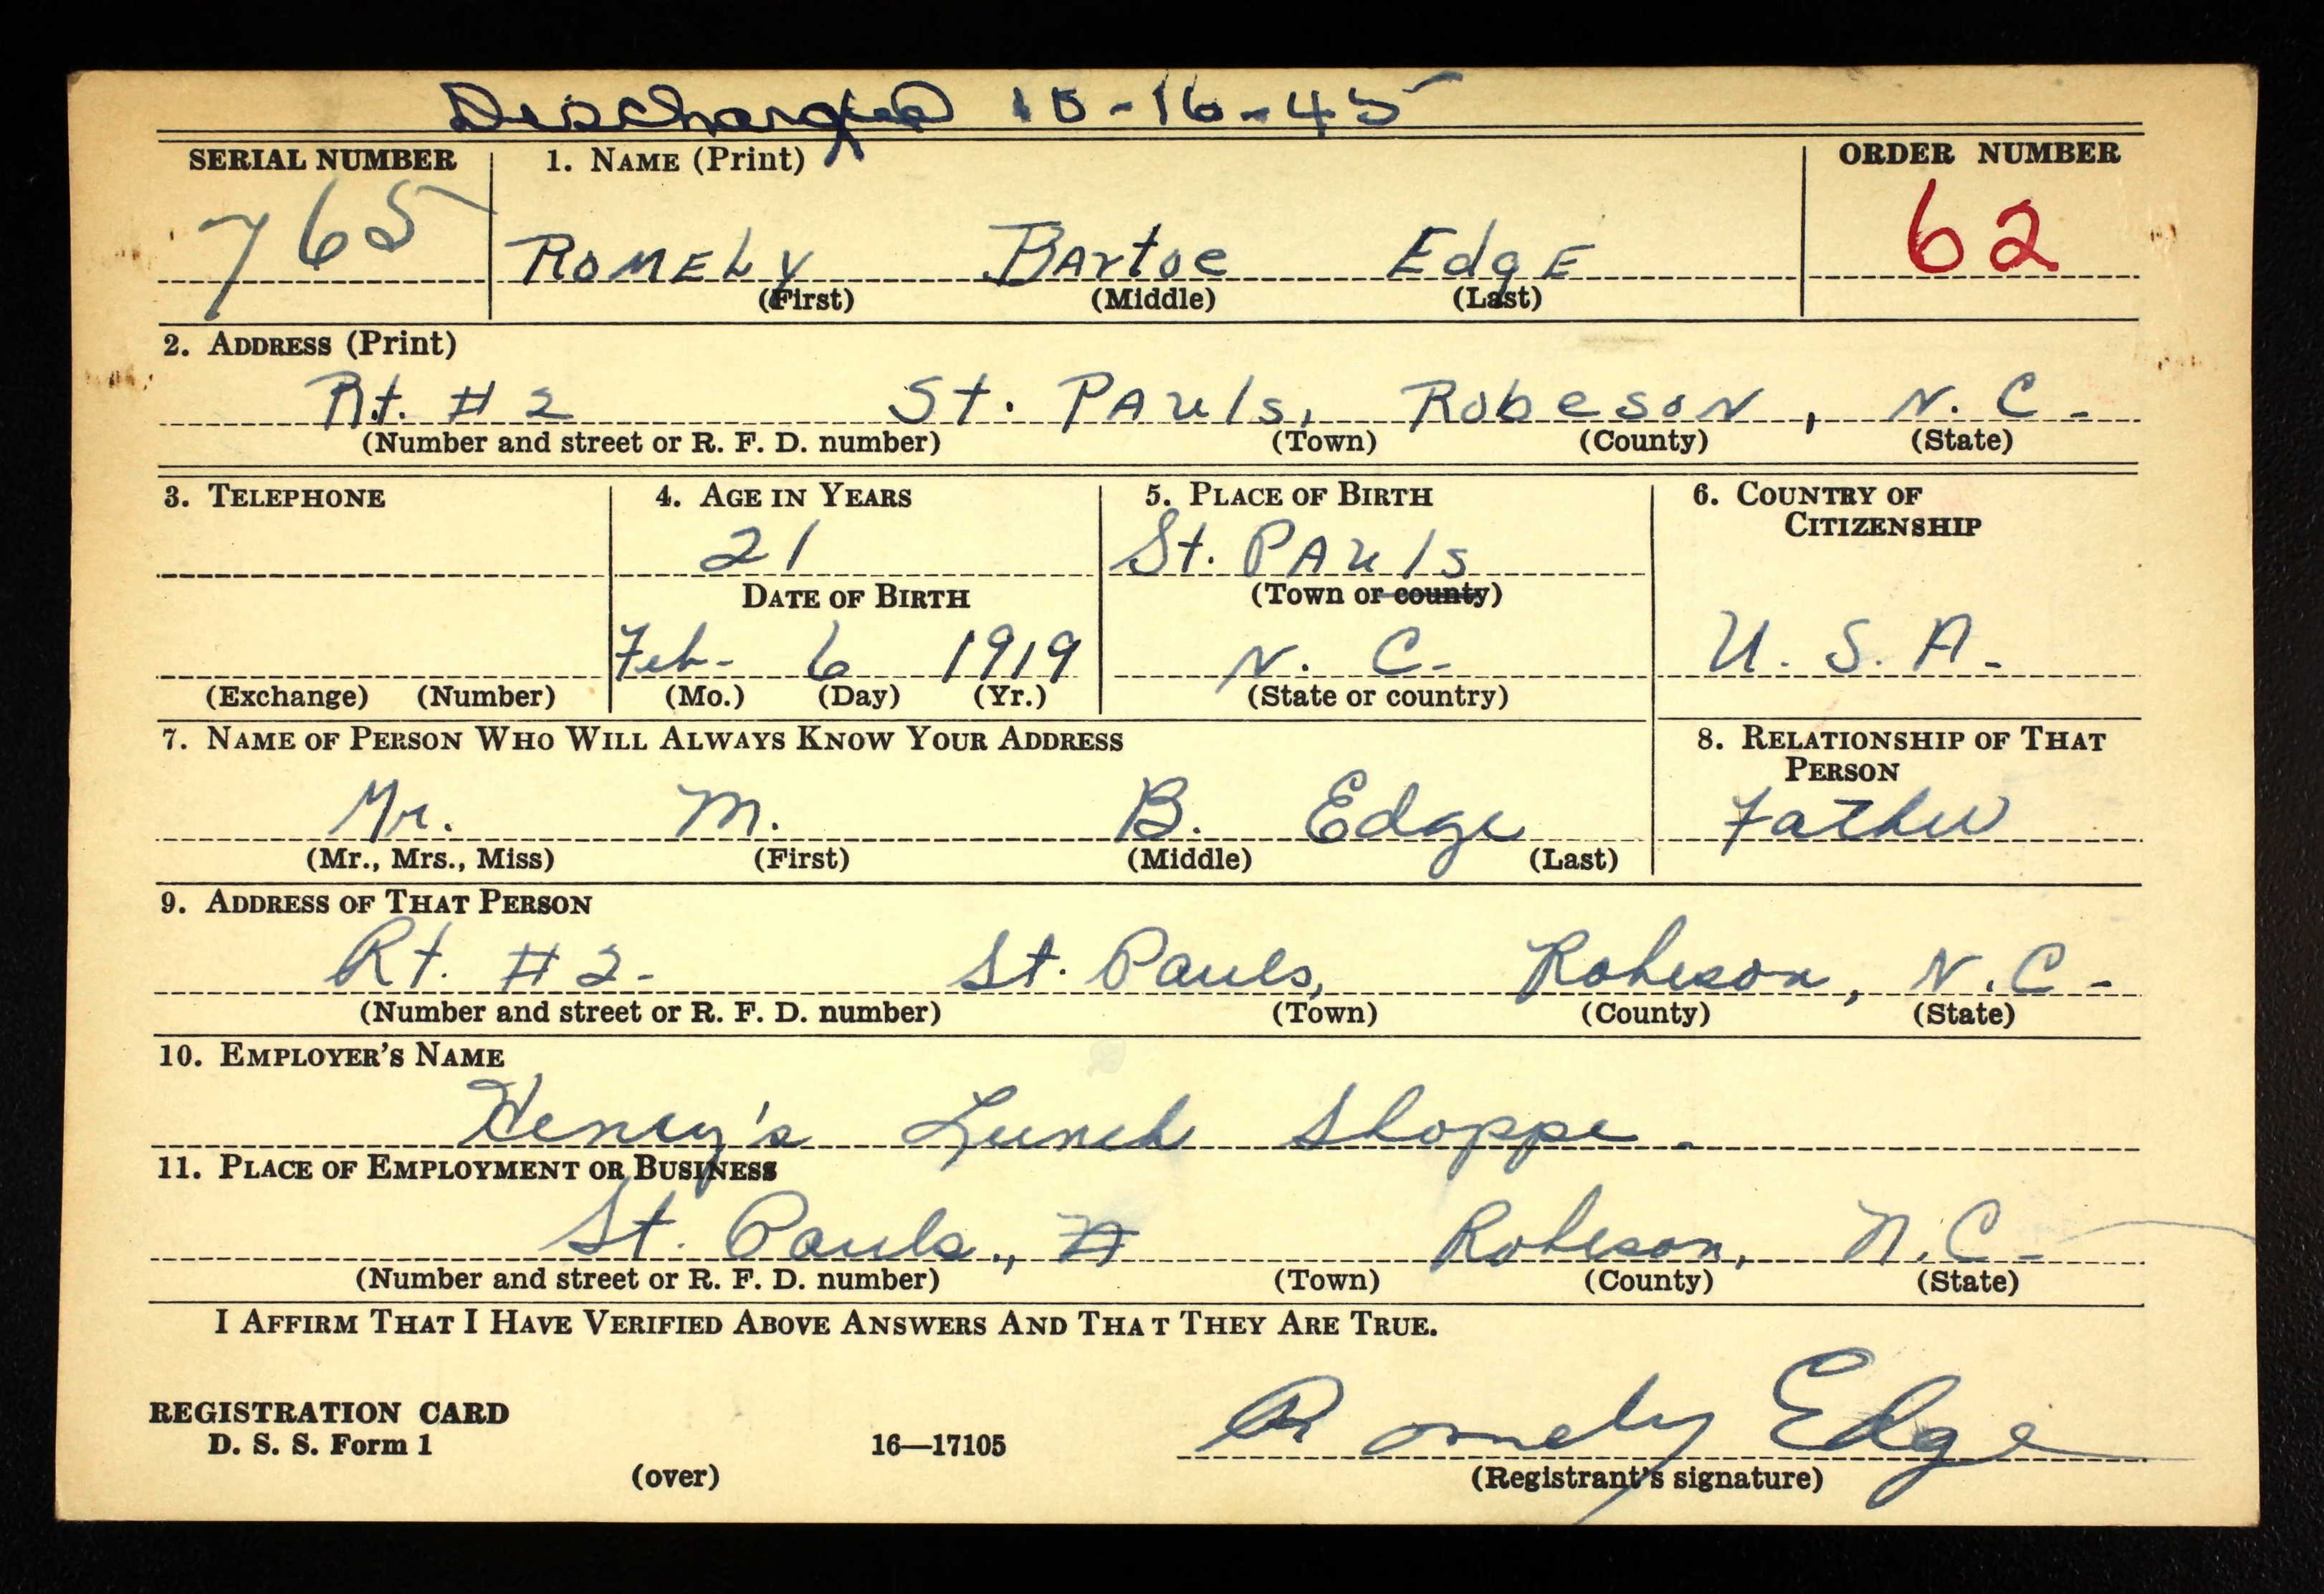 Discharged 10-16-45
SERIAL NUMBER 1. NAME (Print) ORDER NUMBER
765 ROMELY BARTOE EDGE 62
(First) (Middle) (Last)
2. ADDRESS (Print)
Rt. # 2 St. PAuls, Robeson, N. C.
(Number and street or R. F. D. number) (Town) (County) (State)
3. TELEPHONE 4. AGE IN YEARS 5. PLACE OF BIRTH 6. COUNTRY OF CITIZENSHIP
21 St. PAuls
DATE OF BIRTH (Town or county)
Feb. 6 1919 N. C. U. S. A.
(Exchange) (Number) (Mo.) (Day) (Yr.) (State or country)
7. NAME OF PERSON WHO WILL ALWAYS KNOW YOUR ADDRESS 8. RELATIONSHIP OF THAT PERSON
Mr. M. B. Edge Father
(Mr., Mrs., Miss) (First) (Middle) (Last)
9. ADDRESS OF THAT PERSON
Rt. # 2. St. Pauls, Robeson, N.C.
(Number and street or R. F. D. number) (Town) (County) (State)
10. EMPLOYER'S NAME
Henry's Lunch Shoppe.
11. PLACE OF EMPLOYMENT OR BUSINESS
St. Pauls., Robeson, N.C.
(Number and street or R. F. D. number) (Town) (County) (State)
I AFFIRM THAT I HAVE VERIFIED ABOVE ANSWERS AND THAT THEY ARE TRUE.
REGISTRATION CARD
D. S. S. Form 1 16—17105 Romely Edge
(over) (Registrant's signature)